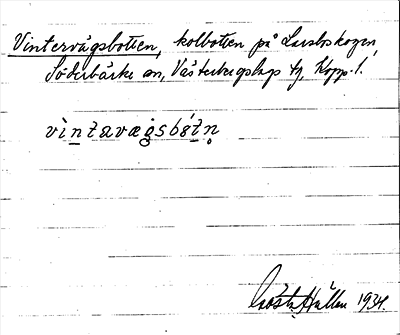 Vintervägsbotten, kolbotten på Larsboskogen,
Söderbärke sn, Västerbergslags tg, Kopp. l.
vìntavægsbót̲n̥
Gösta Hallén 1934.